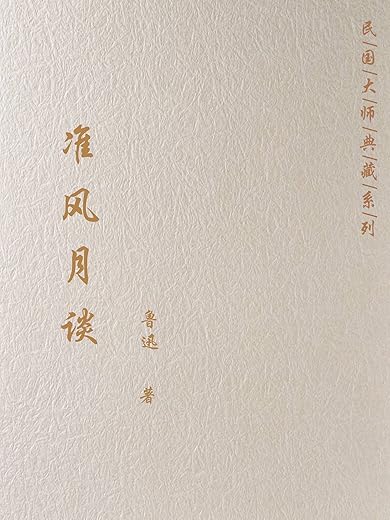 民|国|大|师|典|藏|系|列
准风月谈
鲁迅 著